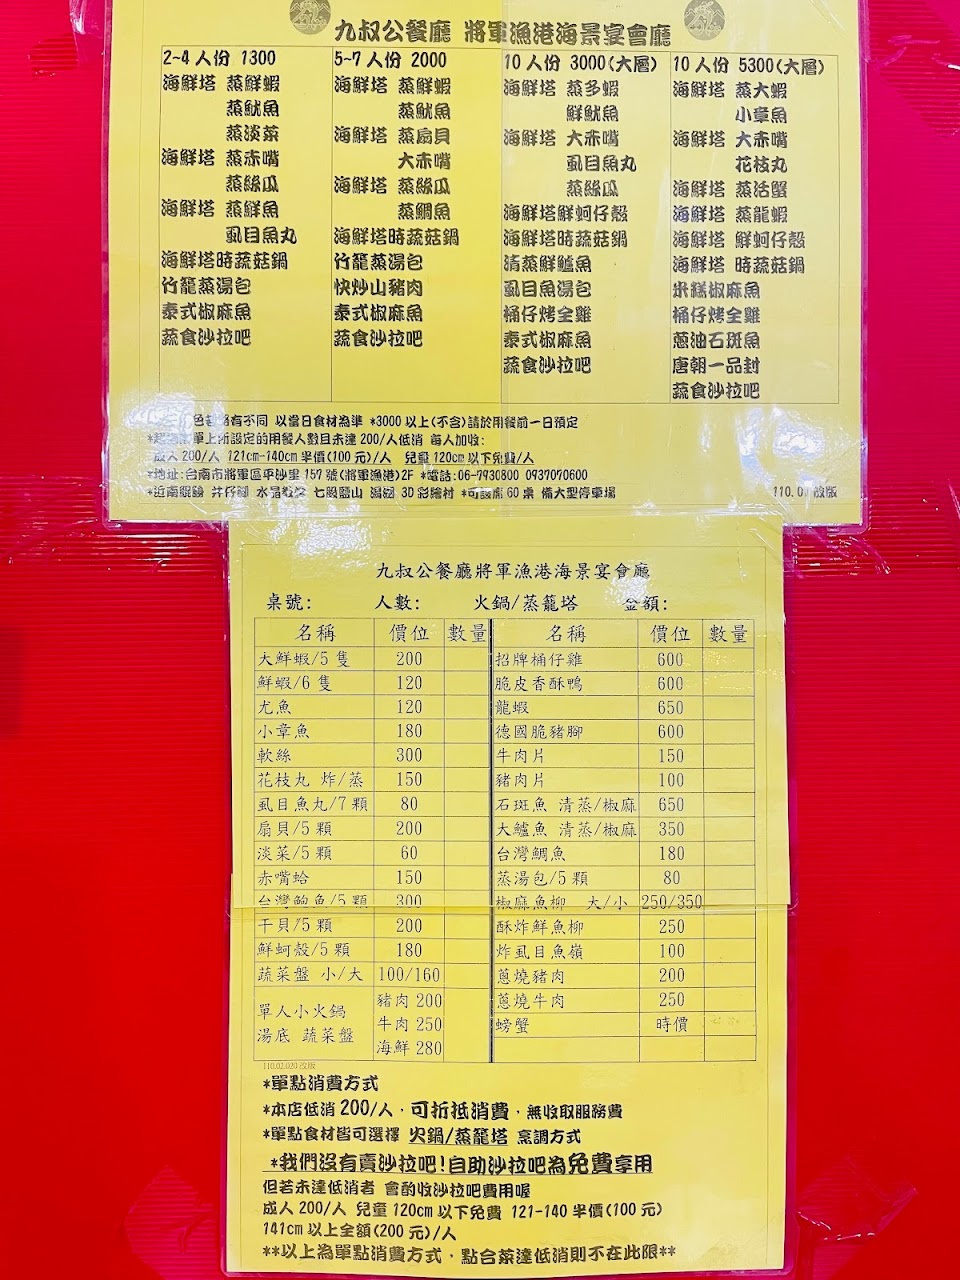 九叔公餐廳 將軍漁港海景宴會廳
2-4 人份 1300
海鮮塔 蒸鮮蝦
蒸魷魚
蒸淡菜
海鮮塔 蒸赤嘴
蒸絲瓜
海鮮塔 蒸鮮魚
虱目魚丸
海鮮塔時蔬菇鍋
竹籠蒸湯包
泰式椒麻魚
蔬食沙拉吧
5-7 人份 2000
海鮮塔 蒸鮮蝦
蒸魷魚
海鮮塔 蒸扇貝
大赤嘴
海鮮塔 蒸絲瓜
蒸鯛魚
海鮮塔時蔬菇鍋
竹籠蒸湯包
快炒山豬肉
泰式椒麻魚
蔬食沙拉吧
10 人份 3000(大層)
海鮮塔 蒸多蝦
鮮魷魚
海鮮塔 大赤嘴
虱目魚丸
蒸絲瓜
海鮮塔鮮蚵仔殼
海鮮塔時蔬菇鍋
清蒸鮮鱸魚
虱目魚湯包
桶仔烤全雞
泰式椒麻魚
蔬食沙拉吧
10 人份 5300(大層)
海鮮塔 蒸大蝦
小章魚
海鮮塔 大赤嘴
花枝丸
海鮮塔 蒸活蟹
海鮮塔 蒸龍蝦
海鮮塔 鮮蚵仔殼
海鮮塔 時蔬菇鍋
米糕椒麻魚
桶仔烤全雞
蔥油石斑魚
唐朝一品封
蔬食沙拉吧
有不同 以當日食材為準 *3000 以上(不含)請於用餐前一日預定
單上所設定的用餐人數且未達 200/人低消 每人加收:
成人 200/人 121cm-140cm 半價(100 元)/人 兒童 120cm 以下免費/人
*地址:台南市將軍區平沙里 157 號(將軍漁港)2F *電話:06-7930800 0937070600
*近南鯤鯓 井仔腳 水晶教堂 七股鹽山 3D 彩繪村 *可設席 60 桌 備大型停車場
110.01 改版
九叔公餐廳將軍漁港海景宴會廳
桌號: 人數: 火鍋/蒸籠塔 金額:
名稱 價位 數量 名稱 價位 數量
大鮮蝦/5 隻 200 招牌桶仔雞 600
鮮蝦/6 隻 120 脆皮香酥鴨 600
尤魚 120 龍蝦 650
小章魚 180 德國脆豬腳 600
軟絲 300 牛肉片 150
花枝丸 炸/蒸 150 豬肉片 100
虱目魚丸/7 顆 80 石斑魚 清蒸/椒麻 650
扇貝/5 顆 200 大鱸魚 清蒸/椒麻 350
淡菜/5 顆 60 台灣鯛魚 180
赤嘴蛤 150 蒸湯包/5 顆 80
台灣鮑魚/5 顆 300 椒麻魚柳 大/小 250/350
干貝/5 顆 200 酥炸鮮魚柳 250
鮮蚵殼/5 顆 180 炸虱目魚嶺 100
蔬菜盤 小/大 100/160 蔥燒豬肉 200
單人小火鍋
湯底 蔬菜盤
豬肉 200
牛肉 250
海鮮 280
蔥燒牛肉 250
螃蟹 時價
110.02.020 改版
*單點消費方式
*本店低消 200/人，可折抵消費，無收取服務費
*單點食材皆可選擇 火鍋/蒸籠塔 烹調方式
*我們沒有賣沙拉吧!自助沙拉吧為免費享用
但若未達低消者 會酌收沙拉吧費用喔
成人 200/人 兒童 120cm 以下免費 121-140 半價(100 元)
141cm 以上全額(200 元)/人
**以上為單點消費方式，點合菜達低消則不在此限**